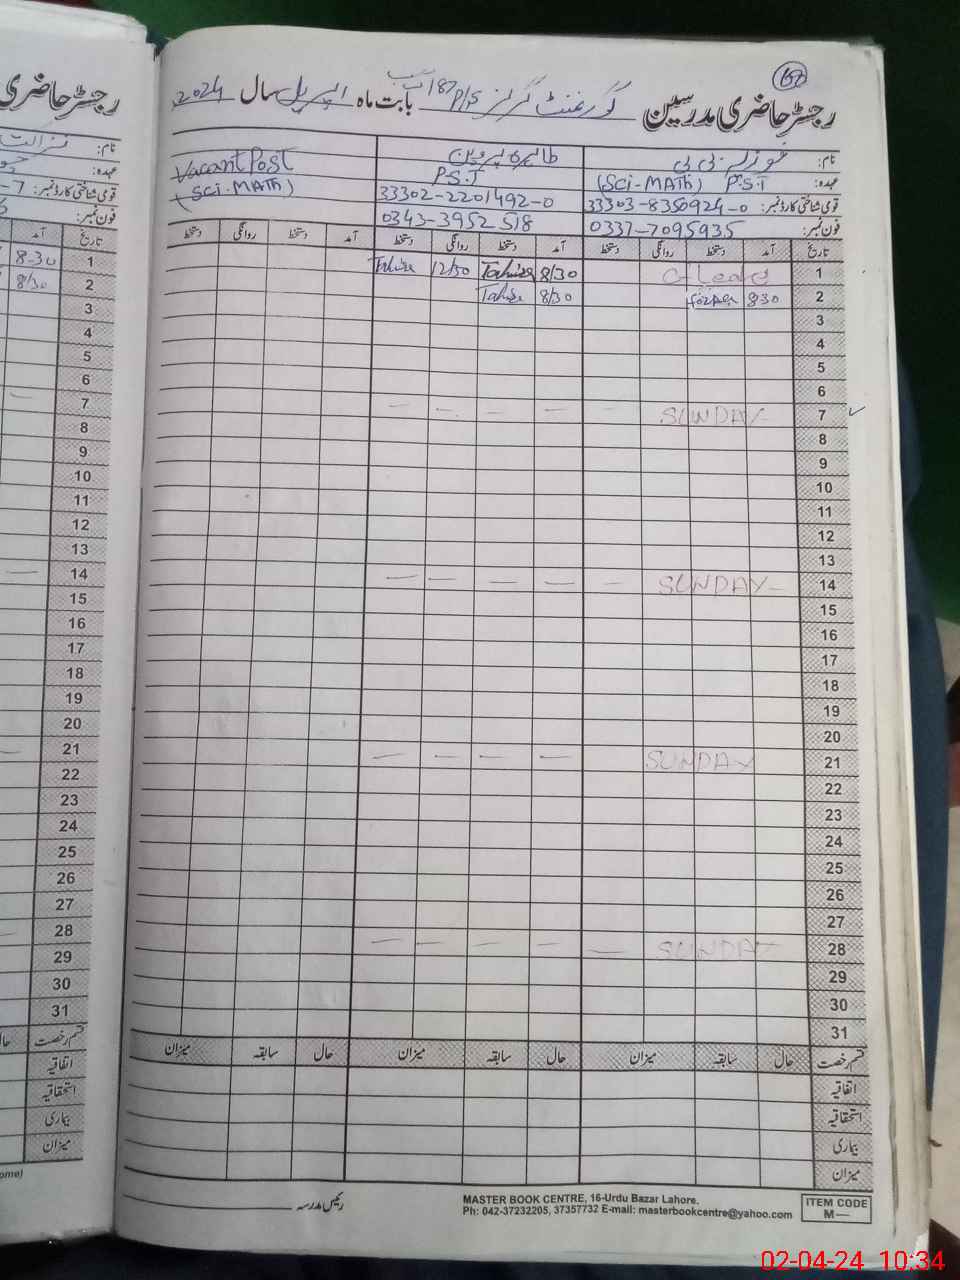 157
رجسٹر حاضری مدرسین گورنمنٹ گرلز P/S 187 بابت ماہ اپریل سال 2024
نام: فوزیہ بی بی طاہرہ پروین Vacant Post
عہدہ: (SCi-MATh) P.S.T P.S.T (SCi-MATh)
قومی شناختی کارڈ نمبر: 33303-8350924-0 33302-2201492-0
فون نمبر: 0337-7095935 0343-3952518
تاریخ آمد دستخط روانگی دستخط آمد دستخط روانگی دستخط آمد دستخط روانگی دستخط
1 C-Leave 8/30 Tahira 12/30 Tahira
2 8:30 8/30 Tahira
3
4
5
6
7 SUNDAY - - - - -
8
9
10
11
12
13
14 SUNDAY - - - - - -
15
16
17
18
19
20
21 SUNDAY - - - -
22
23
24
25
26
27
28 SUNDAY - - - - -
29
30
31
قسم رخصت حال سابقہ میزان حال سابقہ میزان حال سابقہ میزان
اتفاقیہ
استحقاقیہ
بیماری
میزان
رئیس مدرسہ
MASTER BOOK CENTRE, 16-Urdu Bazar Lahore.
Ph: 042-37232205, 37357732 E-mail: masterbookcentre@yahoo.com
ITEM CODE
M—
رجسٹر حاضری
نام:
عہدہ:
قومی شناختی کارڈ نمبر:
فون نمبر:
تاریخ آمد
1 8-30
2 8/30
3
4
5
6
7 -
8
9
10
11
12
13
14 -
15
16
17
18
19
20
21 -
22
23
24
25
26
27
28 -
29
30
31
قسم رخصت
اتفاقیہ
استحقاقیہ
بیماری
میزان
02-04-24 10:34